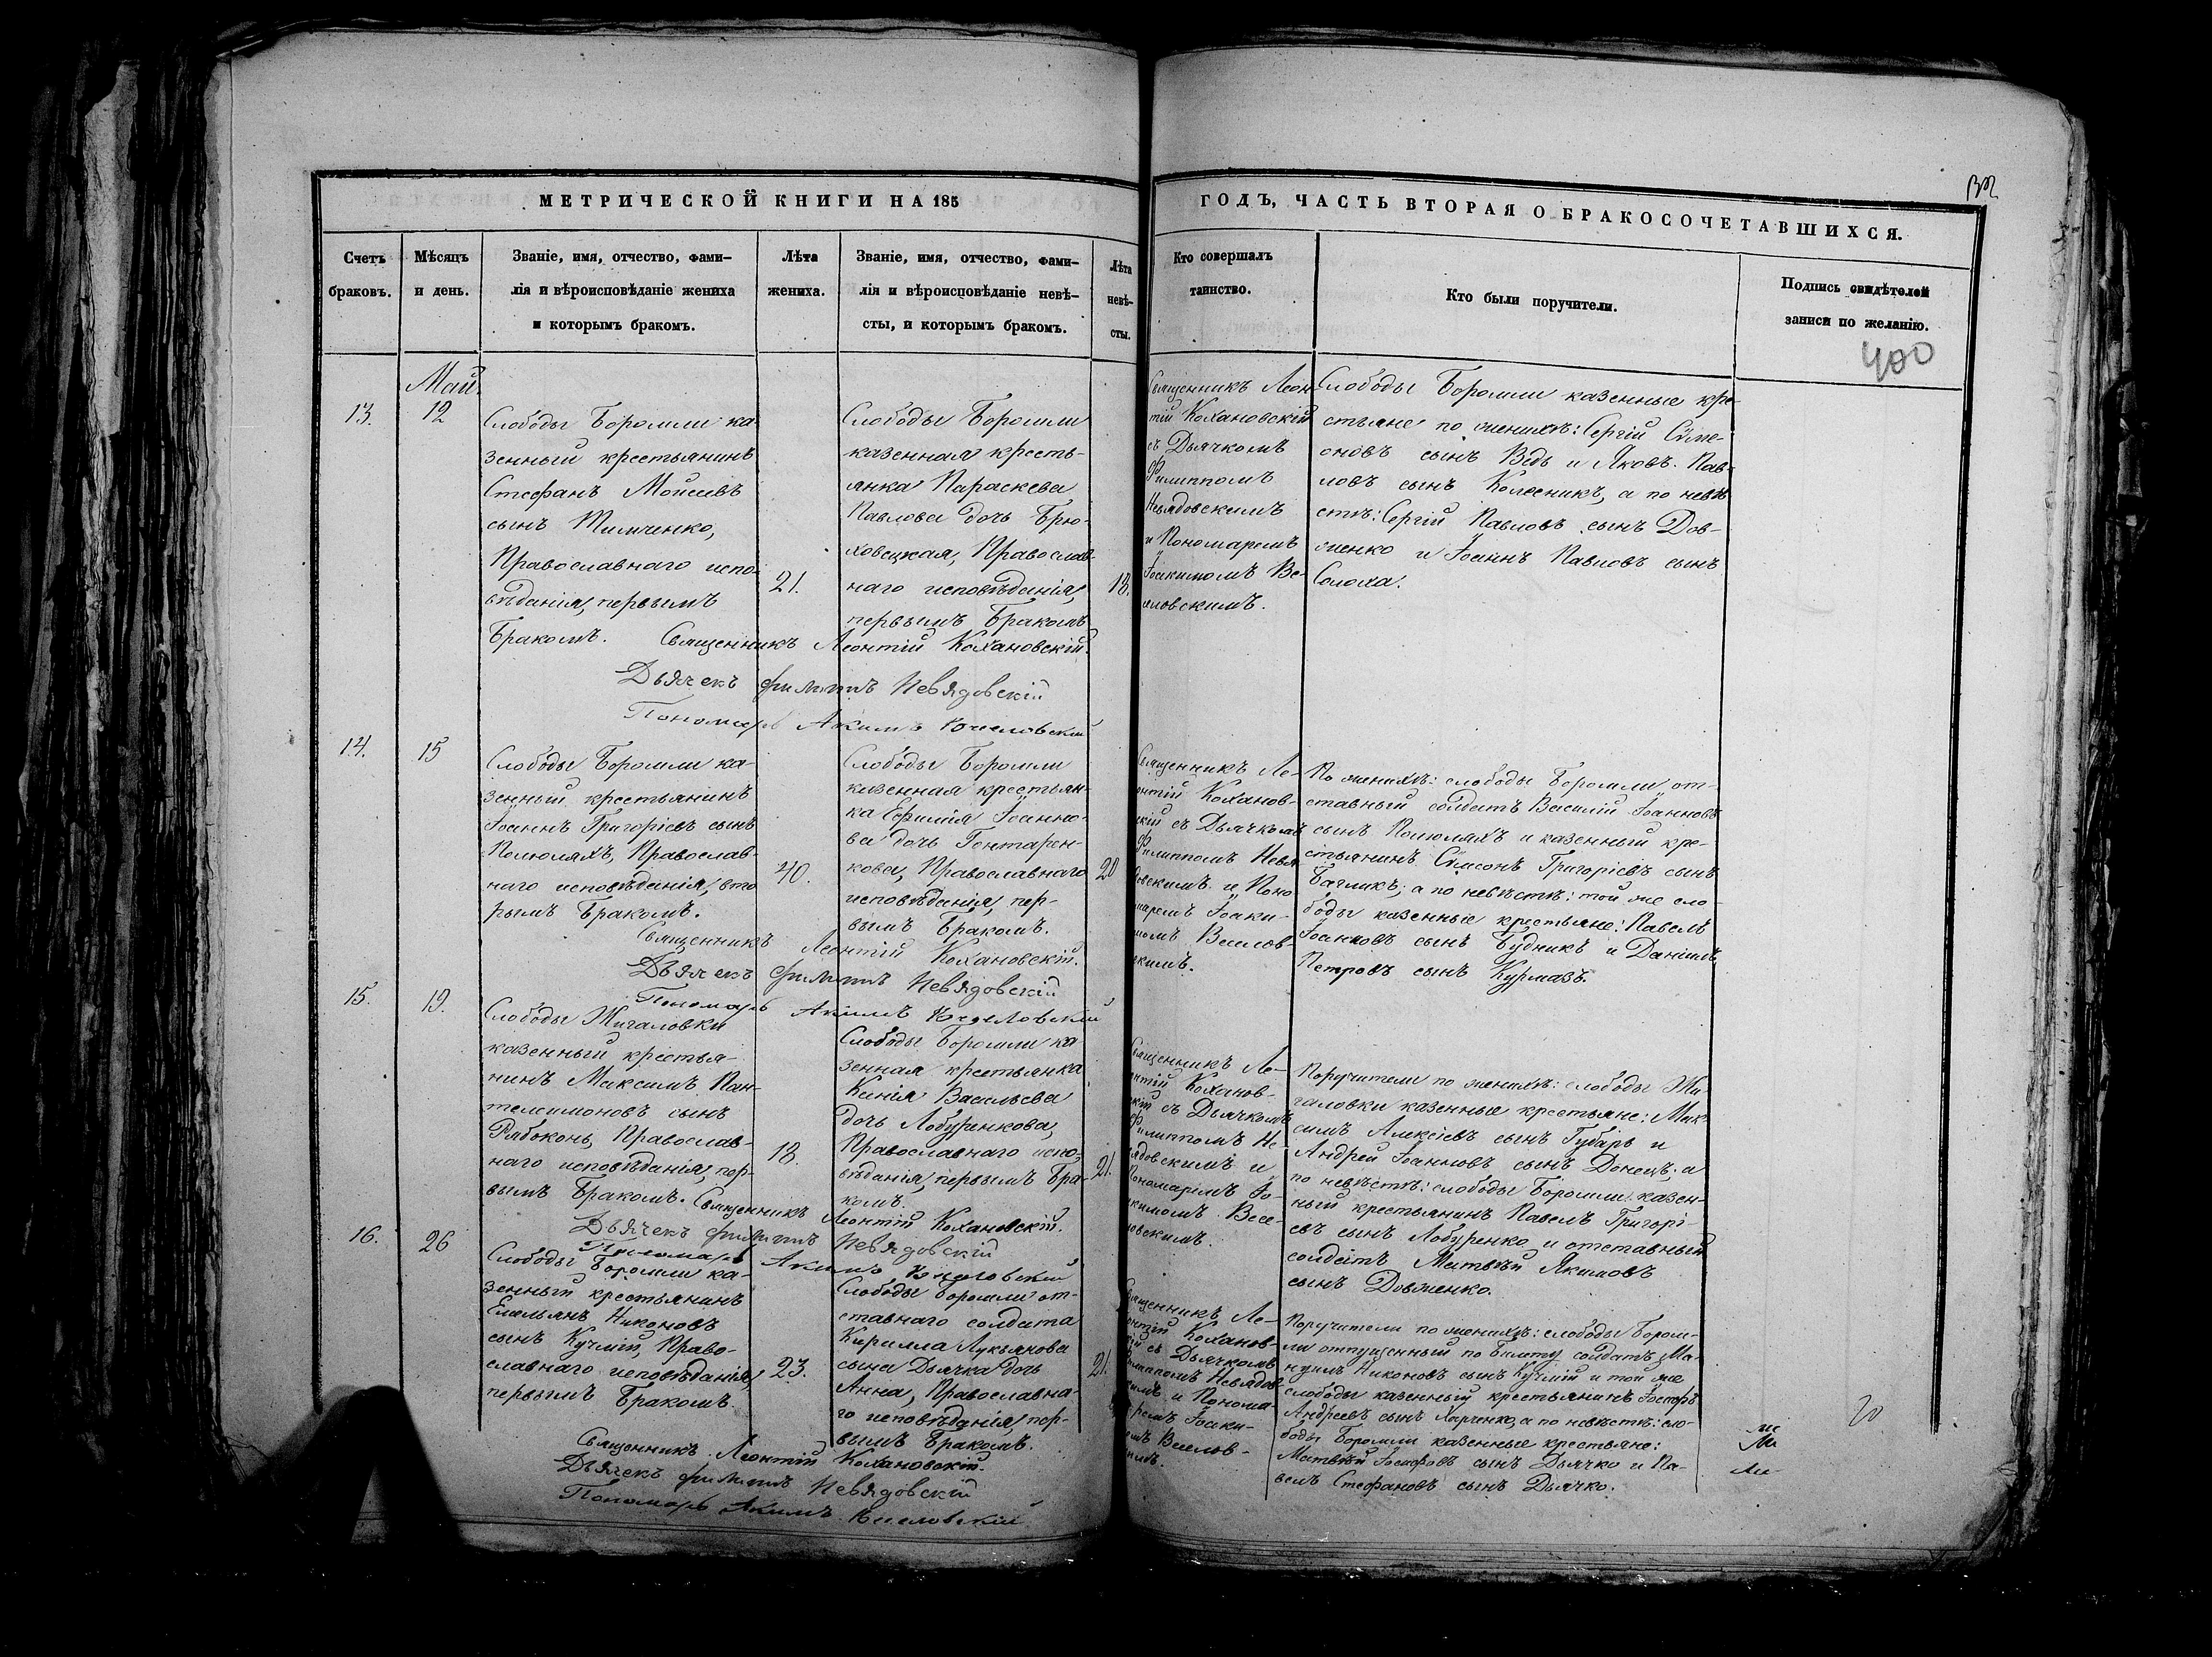 МЕТРИЧЕСКОЙ КНИГИ НА 185
Счетъ браковъ.
Мѣсяцъ и день.
Званіе, имя, отчество, фами-
лія и вѣроисповѣданіе жениха
и которымъ бракомъ.
Лѣта жениха.
Званіе, имя, отчество, фами-
лія и вѣроисповѣданіе невѣ-
сты, и которымъ бракомъ.
Лѣта невѣ-
сты.
ГОДЪ, ЧАСТЬ ВТОРАЯ О БРАКОСОЧЕТАВШИХСЯ.
Кто совершалъ
таинство.
Кто были поручители.
Подпись свидѣтелей
записи по желанію.
400
Май.
13.
12
Слободы Боромли ка-
зенный крестьянинъ
Стефанъ Моѵсеевъ
сынъ Тимченко,
Православнаго испо-
вѣданія, первымъ
бракомъ.
21.
Слободы Боромли
казенная кресть-
янка Параскева
Павлова дочь Брю-
ховецкая, Православ-
наго исповѣданія,
первымъ бракомъ
18.
Священникъ Леон-
тій Кохановскій
съ Дьячкомъ
Филиппомъ
Невядовскимъ
и Пономаремъ
Іоакимомъ Ве-
яловскимъ.
Слободы Боромли казенные кре-
стьяне по женихѣ: Сергій Сѵме-
оновъ сынъ Вѣдь и Яковъ Пав-
ловъ сынъ Колесникъ, а по невѣ-
стѣ: Сергій Павловъ сынъ Дов-
женко и Іоаннъ Павловъ сынъ
Солоха.
Священникъ Леонтій Кохановскій.
Дьячекъ Филиппъ Невядовскій
Пономарь Акимъ
14.
15
Слободы Боромли ка-
зенный крестьянинъ
Іоаннъ Григоріевъ сынъ
Полюляхъ, Православ-
наго исповѣданія, вто
рымъ бракомъ.
40.
Слободы Боромли
казенная крестьян-
ка Евфимія Іоанно-
ва дочь Гонтарен-
кова, Православнаго
исповѣданія, пер-
вымъ бракомъ.
20
Священникъ Ле-
онтій Коханов-
скій съ Дьячкомъ
Филиппомъ Невя-
довскимъ и Поно
маремъ Іоаки-
момъ Веселов-
скимъ.
По женихѣ: слободы Боромли от-
ставный солдатъ Василій Іоанновъ
сынъ Полюляхъ и казенный кре-
стьянинъ Сѵмеонъ Григоріевъ сынъ
Багликъ; а по невѣстѣ: той же сло-
боды казенные крестьяне: Павелъ
Іоанновъ сынъ Будникъ и Даніилъ
Петровъ сынъ Курмазъ.
Священникъ Леонтій Кохановскій.
Дьячекъ Филиппъ Невядовскій
Пономарь Акимъ Веселовскій
15.
19.
Слободы Жигаловки
казенный крестья-
нинъ Максимъ Пан-
телеимоновъ сынъ
Рябоконь, Православ-
наго исповѣданія, пер-
вымъ бракомъ.
18.
Слободы Боромли ка
зенная крестьянка
Ксенія Васильева
дочь Лобуренкова,
Православнаго испо-
вѣданія, первымъ бра-
комъ.
21.
Священникъ Ле-
онтій Коханов-
скій съ Дьячкомъ
Филиппомъ Не-
вядовскимъ и
Пономаремъ Іо-
акимомъ Весе-
ловскимъ.
Поручители по женихѣ: слободы Жи-
галовки казенные крестьяне: Мак-
симъ Алексіевъ сынъ Губарь и
Андрей Іоанновъ сынъ Донецъ; а
по невѣстѣ: слободы Боромли казен-
ный крестьянинъ Павелъ Григорі-
евъ сынъ Лобуренко и отставный
солдатъ Матвѣй Якимовъ
сынъ Довженко.
Священникъ Леонтій Кохановскій.
Дьячекъ Филиппъ Невядовскій
Пономарь Акимъ
16.
26
Слободы Боромли ка-
зенный крестьянинъ
Емельянъ Никоновъ
сынъ Кучмій, Право-
славнаго исповѣданія,
первымъ бракомъ.
23.
Слободы Боромли от-
ставнаго солдата
Кирилла Лукьянова
сына Дьячка дочь
Анна, Православна-
го исповѣданія, пер-
вымъ бракомъ.
21.
Священникъ Ле-
онтій Коханов-
скій съ Дьячкомъ
Филиппомъ Невядов-
скимъ и Понома-
ремъ Іоаки-
момъ Веселов-
скимъ.
Поручители по женихѣ: слободы Бором-
ли отпущенный по билету солдатъ Ма-
нуилъ Никоновъ сынъ Кучмій и той же
слободы казенный крестьянинъ Іосифъ
Андреевъ сынъ Харченко, а по невѣстѣ: сло-
боды Боромли казенные крестьяне:
Матвѣй Іосифовъ сынъ Дьячко и Па-
велъ Стефановъ сынъ Дьячко.
Священникъ Леонтій Кохановскій.
Дьячекъ Филиппъ Невядовскій
Пономарь Акимъ Веселовскій
20